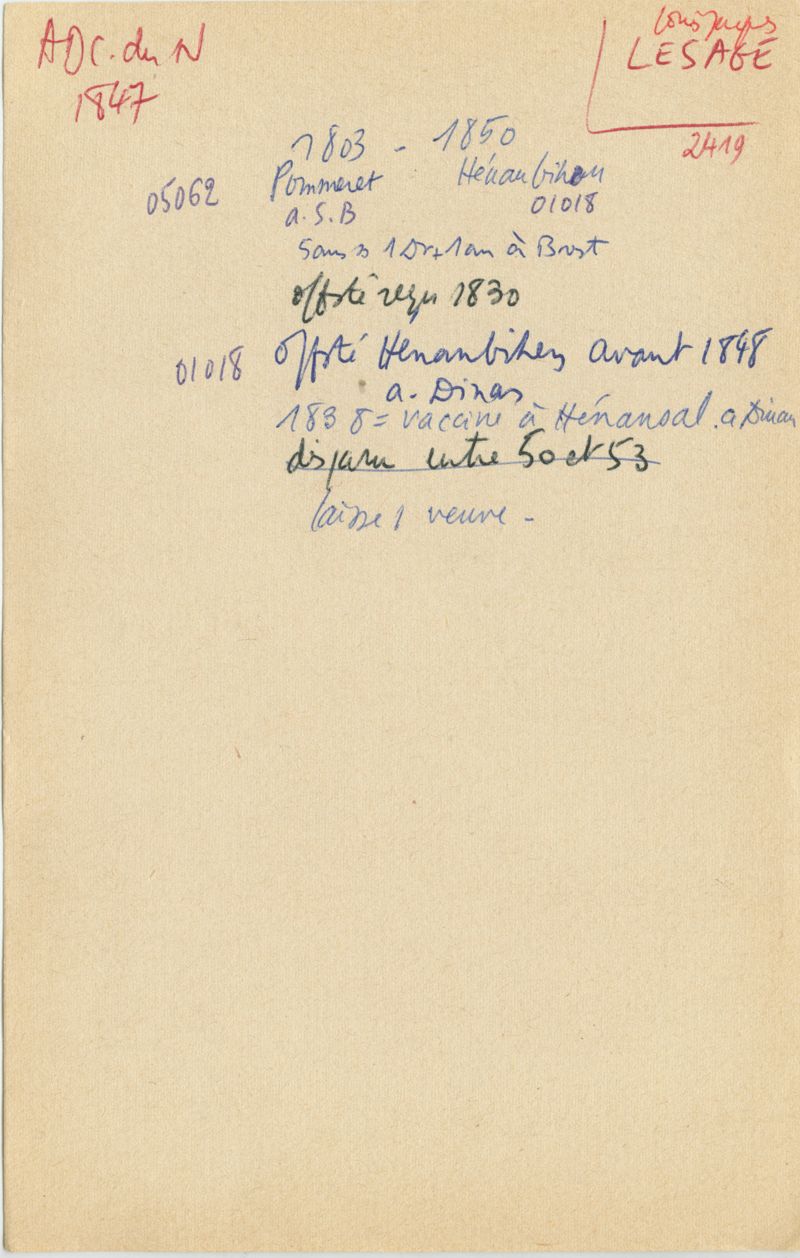 ADC. du N
1847
Louis Jacques
LESAGE
2419
1803 - 1850
05062 Pommeret Hénanbihen
a. S. B 01018
1 an à Brest
offsté reçu 1830
01018 offsté Hénanbihen avant 1848
a. Dinan
1838 = vaccine à Hénansal. a Dinan
disparu entre 50 et 53
laisse 1 veuve -